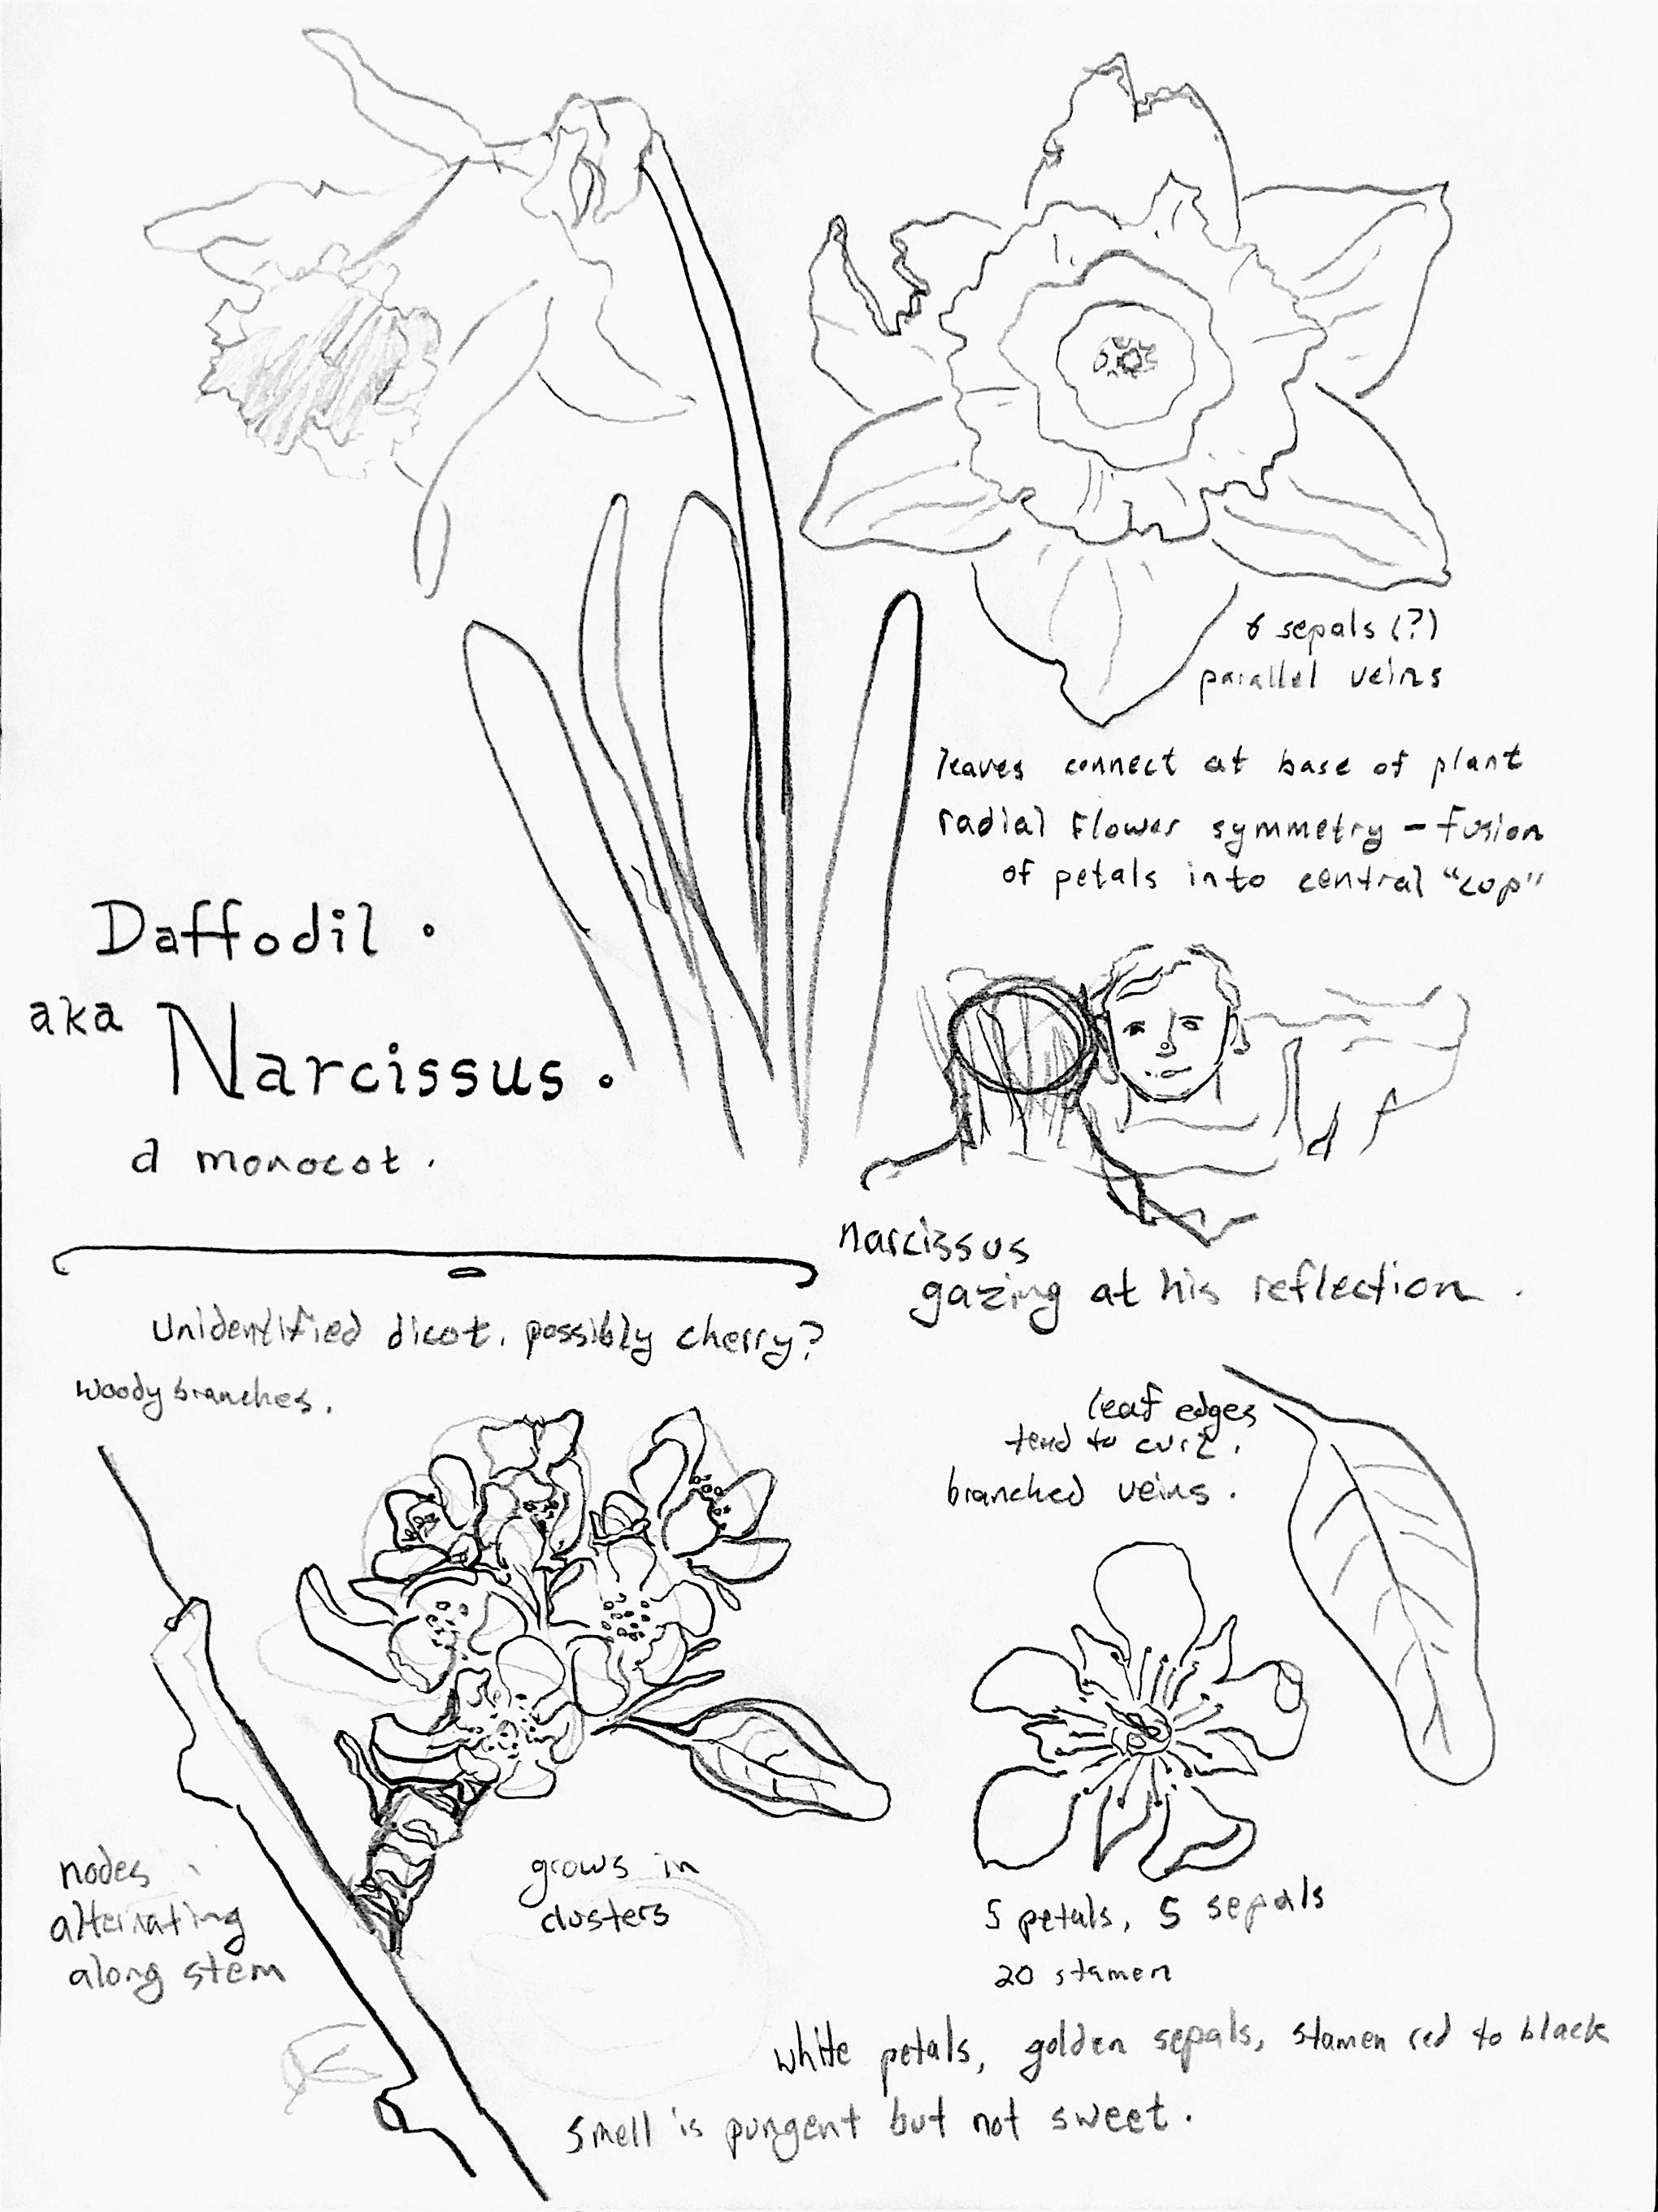 6 sepals (?)
parallel veins
leaves connect at base of plant
radial flower symmetry – fusion
of petals into central "cup"
Daffodil.
aka
Narcissus.
a monocot.
narcissus
gazing at his reflection.
Unidentified dicot. possibly cherry?
woody branches.
leaf edges
tend to curl.
branched veins.
nodes
alternating
along stem
grows in
clusters
5 petals, 5 sepals
20 stamen
white petals, golden sepals, stamen red to black
smell is pungent but not sweet.